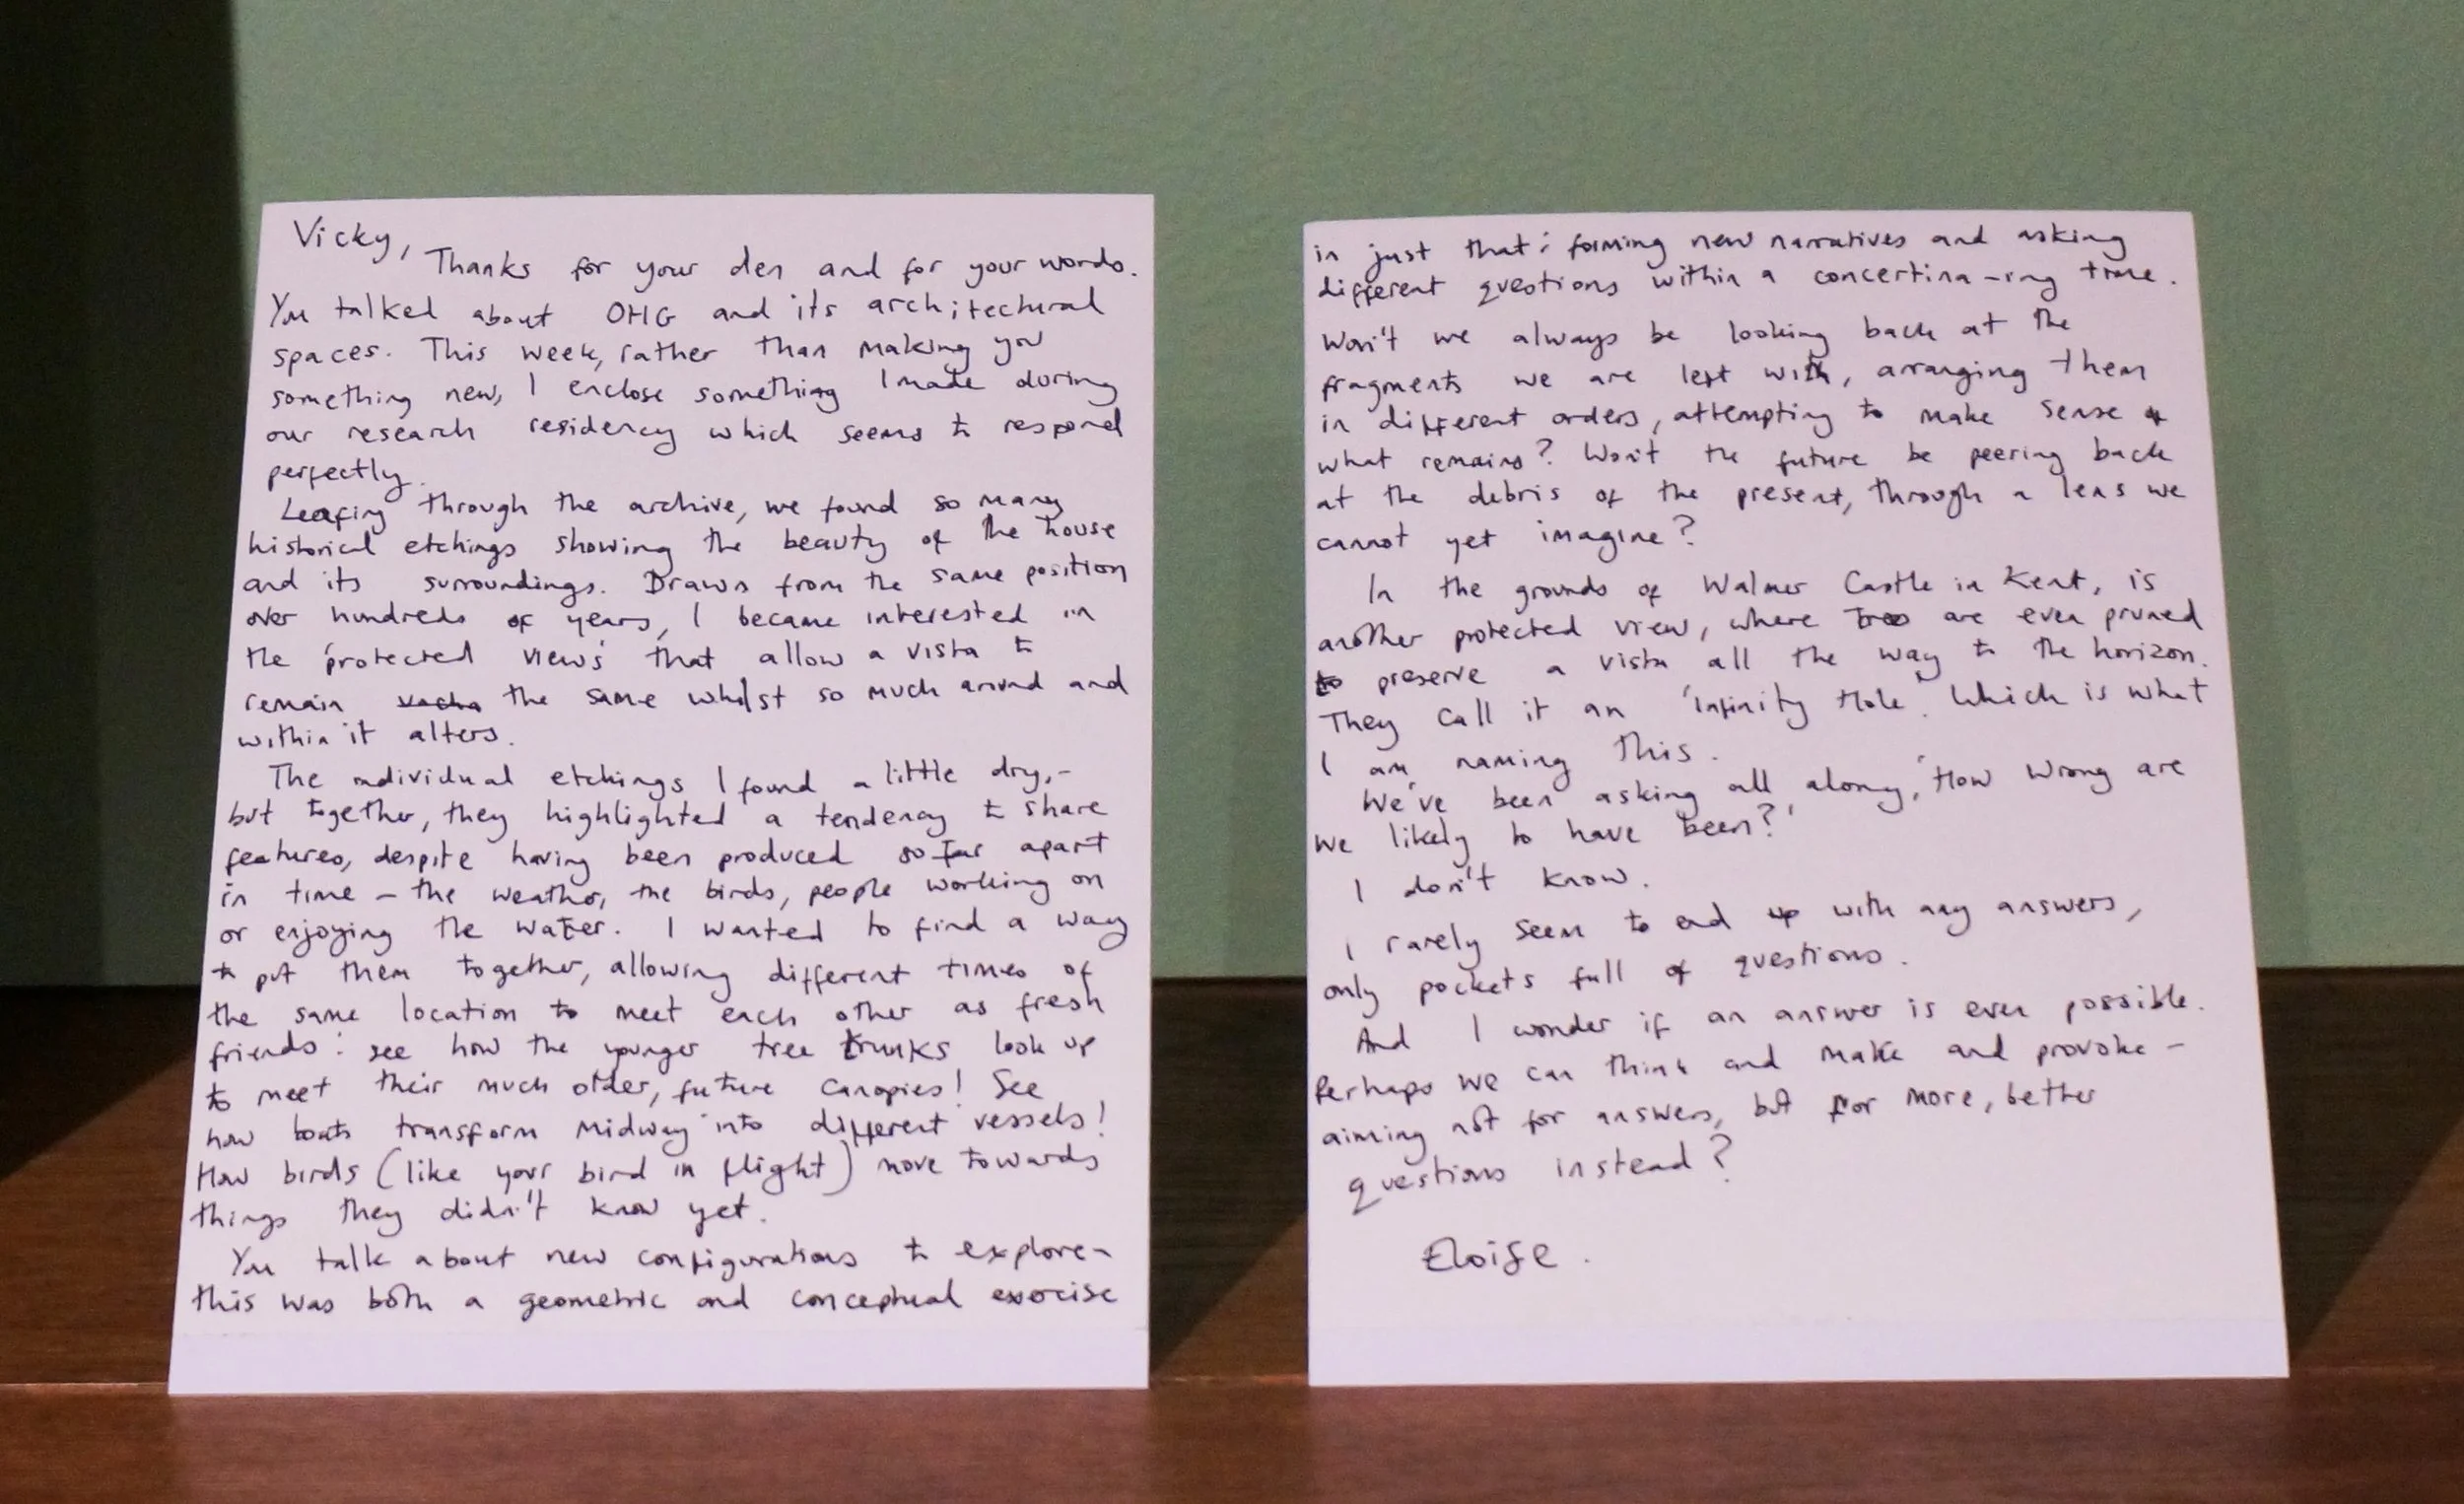 Vicky,
Thanks for your den and for your words.
You talked about OHG and its architectural
spaces. This week, rather than making you
something new, I enclose something I made during
our research residency which seems to respond
perfectly.
Leafing through the archive, we found so many
historical etchings showing the beauty of the house
and its surroundings. Drawn from the same position
over hundreds of years, I became interested in
the 'protected views' that allow a vista to
remain the same whilst so much around and
within it alters.
The individual etchings I found a little dry,-
but together, they highlighted a tendency to share
features, despite having been produced so far apart
in time - the weather, the birds, people working on
or enjoying the water. I wanted to find a way
to put them together, allowing different times of
the same location to meet each other as fresh
friends: see how the younger tree trunks look up
to meet their much older, future canopies! See
how boats transform midway into different vessels!
How birds (like your bird in flight) move towards
things they didn't know yet.
You talk about new configurations to explore -
this was both a geometric and conceptual exercise
in just that: forming new narratives and asking
different questions within a concertina-ing time.
Won't we always be looking back at the
fragments we are left with, arranging them
in different orders, attempting to make sense of
what remains? Won't the future be peering back
at the debris of the present, through a lens we
cannot yet imagine?
In the grounds of Walmer Castle in Kent, is
another protected view, where trees are even pruned
to preserve a vista all the way to the horizon.
They call it an 'Infinity Hole'. Which is what
I am naming this.
We've been asking all along, 'How wrong are
we likely to have been?'
I don't know.
I rarely seem to end up with any answers,
only pockets full of questions.
And I wonder if an answer is ever possible.
Perhaps we can think and make and provoke -
aiming not for answers, but for more, better
questions instead?
Eloise.